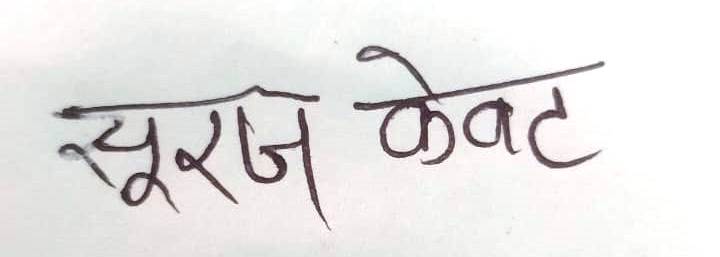 सूरज केवट